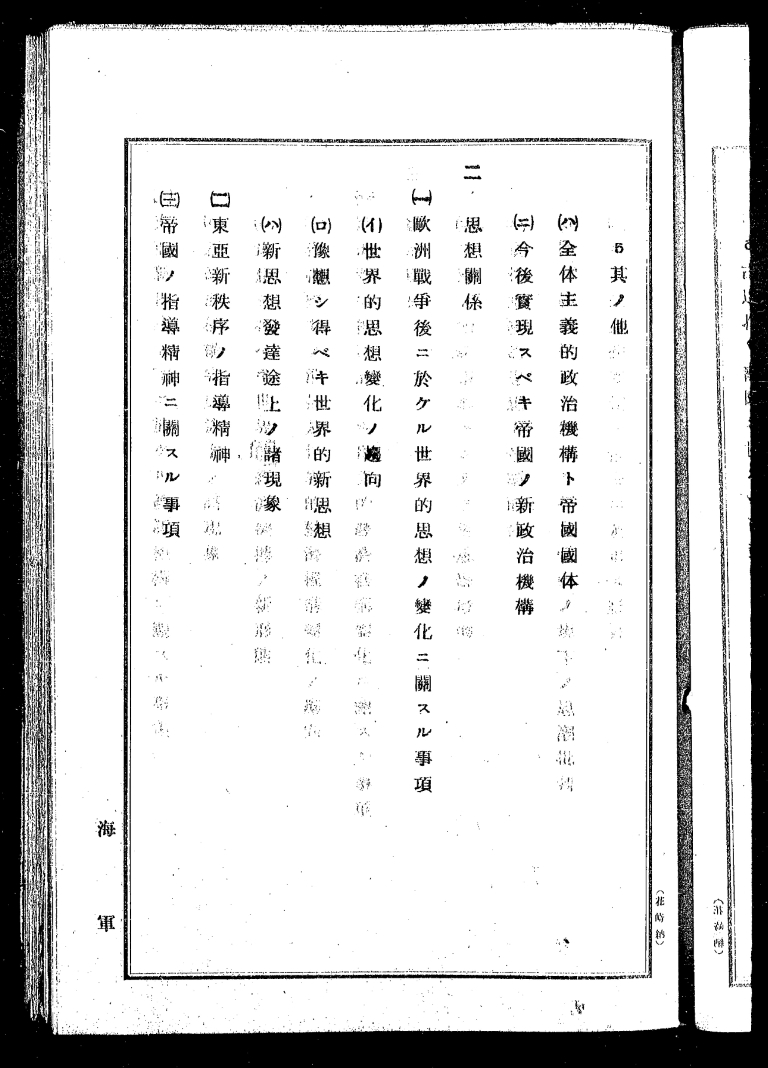 5其ノ他
(ハ)全体主義的政治機構ト帝國國体
(ニ)今後實現スベキ帝國ノ新政治機構
二 思想關係
(一)歐洲戰爭後ニ於ケル世界的思想ノ變化ニ關スル事項
(イ)世界的思想變化ノ趨向
(ロ)豫想シ得ベキ世界的新思想
(ハ)新思想發達途上ノ諸現象
(二)東亞新秩序ノ指導精神
(三)帝國ノ指導精神ニ關スル事項
海軍